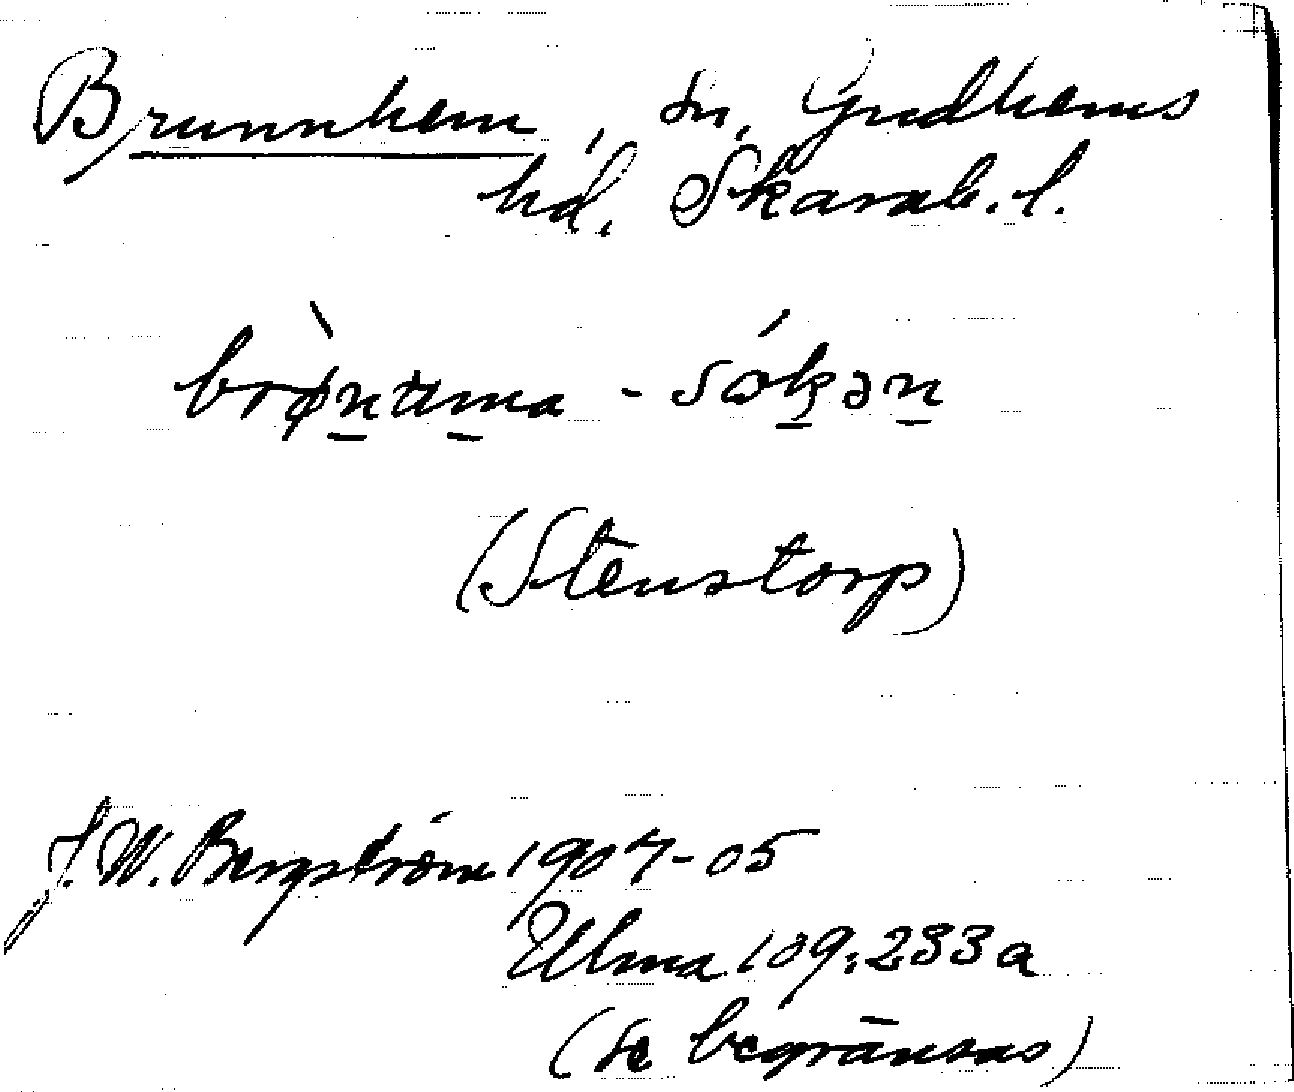 Brunnhem, sn, Gudhems
hd. Skarab. l.
brø̀numa - sókən
(Stenstorp)
J. W. Bergström 1904-05
Ulma 109:233a
(se begränsas)